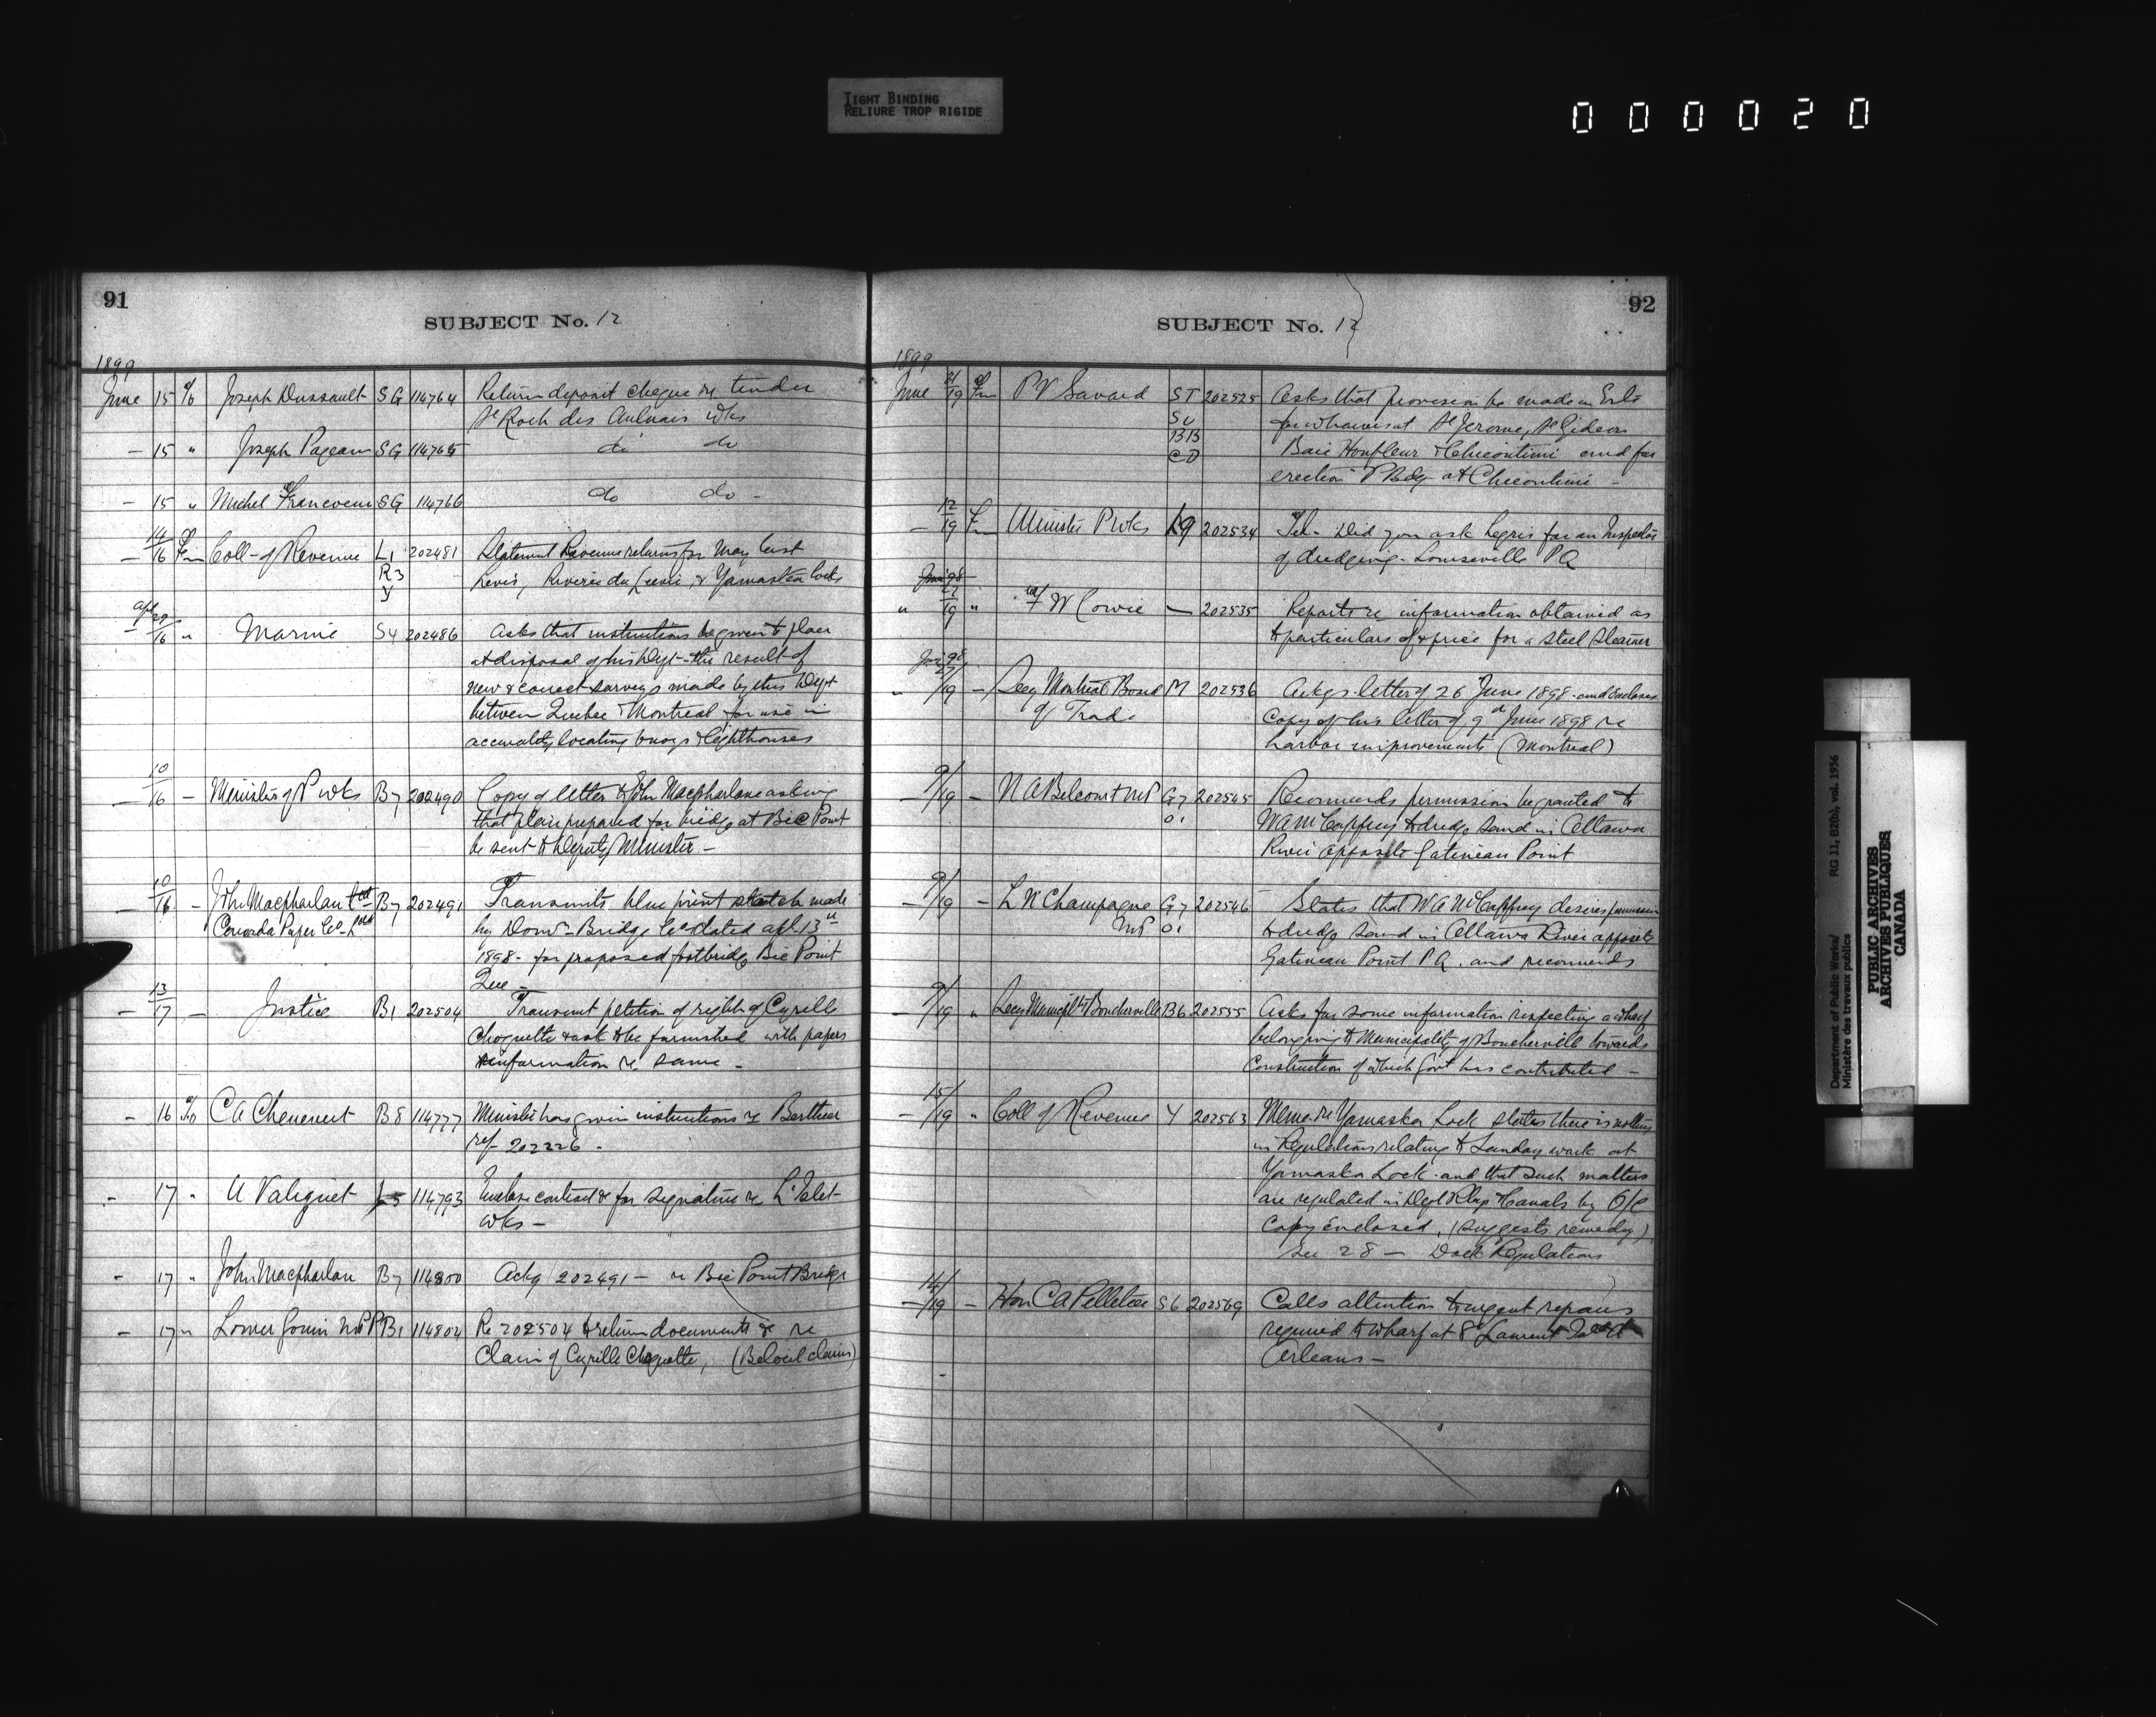 TIGHT BINDING
RELIURE TROP RIGIDE
000020
91
SUBJECT No. 12
1899
June 15 Joseph Dussault SG 114764 Return deposit cheque re tender
St Roch des Aulnais Wks
– 15 " Joseph Pageau SG 114765 do do
– 15 " Michel Francoeur SG 114766 do do –
– 14/16 Fm Coll– of Revenue L1 202481 Statement Revenue returns for May last
R3 Levis, Riviere du Lievre, & Yamaska locks
Y
Apl 29/16 " Marine S4 202486 Asks that instructions be given to place
at disposal of his Dept – the result of
new & correct surveys made by this Dept
between Quebec & Montreal for use in
accurately locating buoys & lighthouses
– 10/16 – Minister of P wks B7 202490 Copy of letter to John Macpherlane asking
that plan prepared for bridge at Bic Point
be sent to Deputy Minister –
– 10/16 – John Macpharlan B7 202491 Transmits blue print sketch made
Canada Paper Co – by Domn – Bridge Co dated apl 13th
1898 – for proposed footbridge Bic Point
Que –
– 13/17 – Justice B1 202504 Transmit petition of right of Cyrille
Choquette & ask to be furnished with papers
& information re same –
– 16 C A Chenevert B8 114777 Minister has given instructions re Berthier
ref – 202226 –
– 17 " U Valiquet L5 114793 Enclose contract & for signature re L'Islet
wks –
– 17 " John Macpharlan B7 114800 Ackg 202491 – re Bic Point Bridge
– 17 " Lomer Gouin MPP B1 114804 Re 202504 & return documents & re
Claim of Cyrille Choquette, (Beloeil claim)
92
SUBJECT No. 12
1899
June 21/19 Fm P V Savard ST 202525 Asks that provision be made in Ests
S4 for wharves at St Jerome, St Gideon
BB Baie Honfleur & Chicoutimi and for
CD erection P Bdg – at Chicoutimi –
– 12/19 Fm Minister P wks L9 202534 Tel – Did you ask Legris for an Inspector
of dredging – Louiseville PQ
" 19 " F W Cowie – 202535 Reports re information obtained as
to particulars of & price for a steel steamer
– 19 – Secy Montreal Board M 202536 Ackgs letter of 26 June 1898 – and encloses
of Trade copy of his letter of 9th June 1898 re
harbor improvements (Montreal)
– 9/19 – N A Belcourt MP G7 202545 Recommends permission be granted to
O1 W A McCaffrey to dredge sand in Ottawa
River opposite Gatineau Point
– 9/19 – L N Champagne G7 202546 States that W A McCaffrey desires permission
MP O1 to dredge sand in Ottawa River opposite
Gatineau Point P Q. and recommends
– 9/19 " Secy Municipality Boucherville B6 202555 Asks for some information respecting a wharf
belonging to Municipality of Boucherville towards
Construction of which Govt has contributed –
– 15/19 " Coll of Revenue Y 202563 Memo re Yamaska Lock states there is nothing
in Regulations relating to Sunday work at
Yamaska Lock – and that such matters
are regulated in Dept Rlys & Canals by O/C
Copy Enclosed, (suggests remedy)
Sec 28 – Dock Regulations
– 14/19 – Hon C A Pelletier S6 202569 Calls attention to urgent repairs
required to wharf at St Laurent
Orleans –
Department of Public Works/
Ministère des travaux publics
RG 11, B2(b), vol. 1956
PUBLIC ARCHIVES
ARCHIVES PUBLIQUES
CANADA